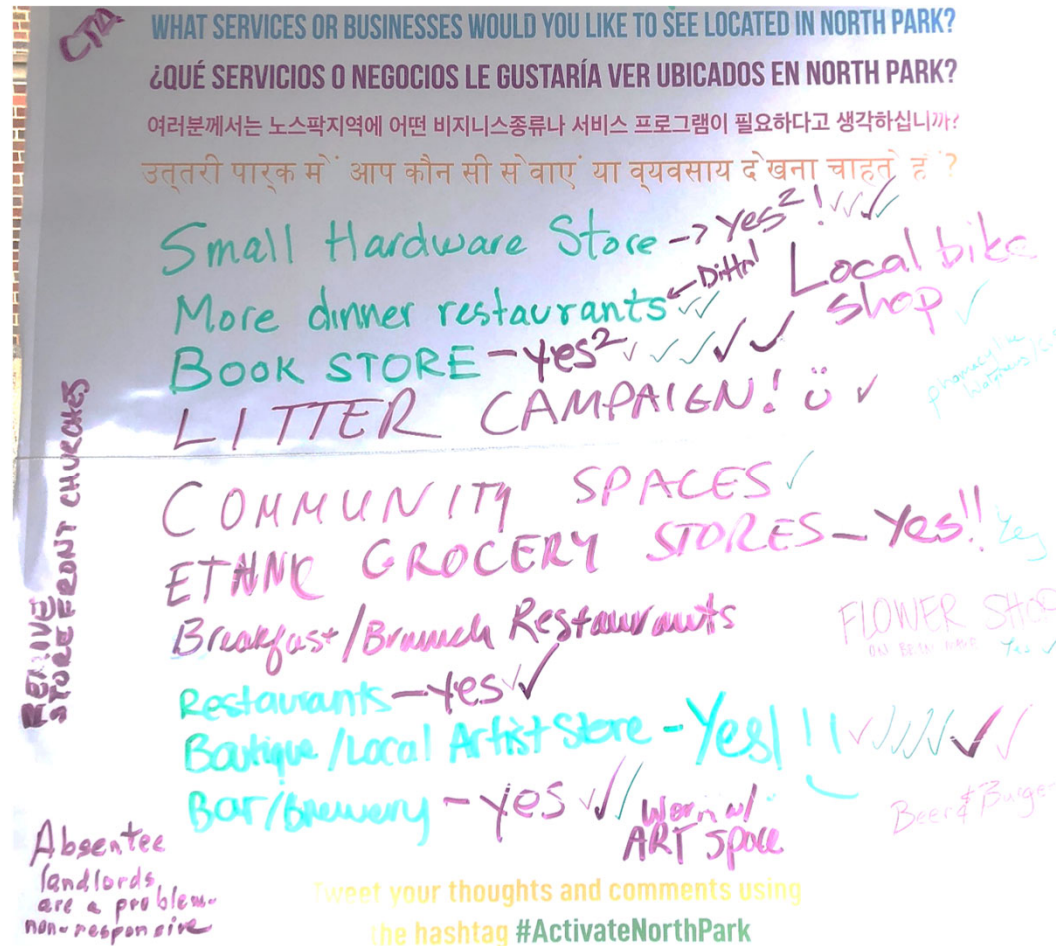 CTA
WHAT SERVICES OR BUSINESSES WOULD YOU LIKE TO SEE LOCATED IN NORTH PARK?
¿QUÉ SERVICIOS O NEGOCIOS LE GUSTARÍA VER UBICADOS EN NORTH PARK?
여러분께서는 노스팍지역에 어떤 비지니스종류나 서비스 프로그램이 필요하다고 생각하십니까?
उत्तरी पार्क में आप कौन सी सेवाएं या व्यवसाय देखना चाहते हैं?
Small Hardware Store -> yes²! ✓✓✓
More dinner restaurants ← Ditto! ✓✓
Local bike
shop ✓
BOOK STORE - yes² ✓✓✓✓✓
LITTER CAMPAIGN! ✓
COMMUNITY SPACES ✓
ETHNIC GROCERY STORES - Yes!! Yes
Breakfast/Brunch Restaurants
FLOWER SHOP
Yes ✓
Restaurants - yes ✓✓
Boutique/Local Artist Store - Yes!!! ✓✓✓✓✓✓✓
Bar/Brewery - yes ✓✓✓
ART Space
Beer & Burger
STOREFRONT CHURCHES
Absentee
landlords
are a problem-
non-responsive
Tweet your thoughts and comments using
the hashtag #ActivateNorthPark